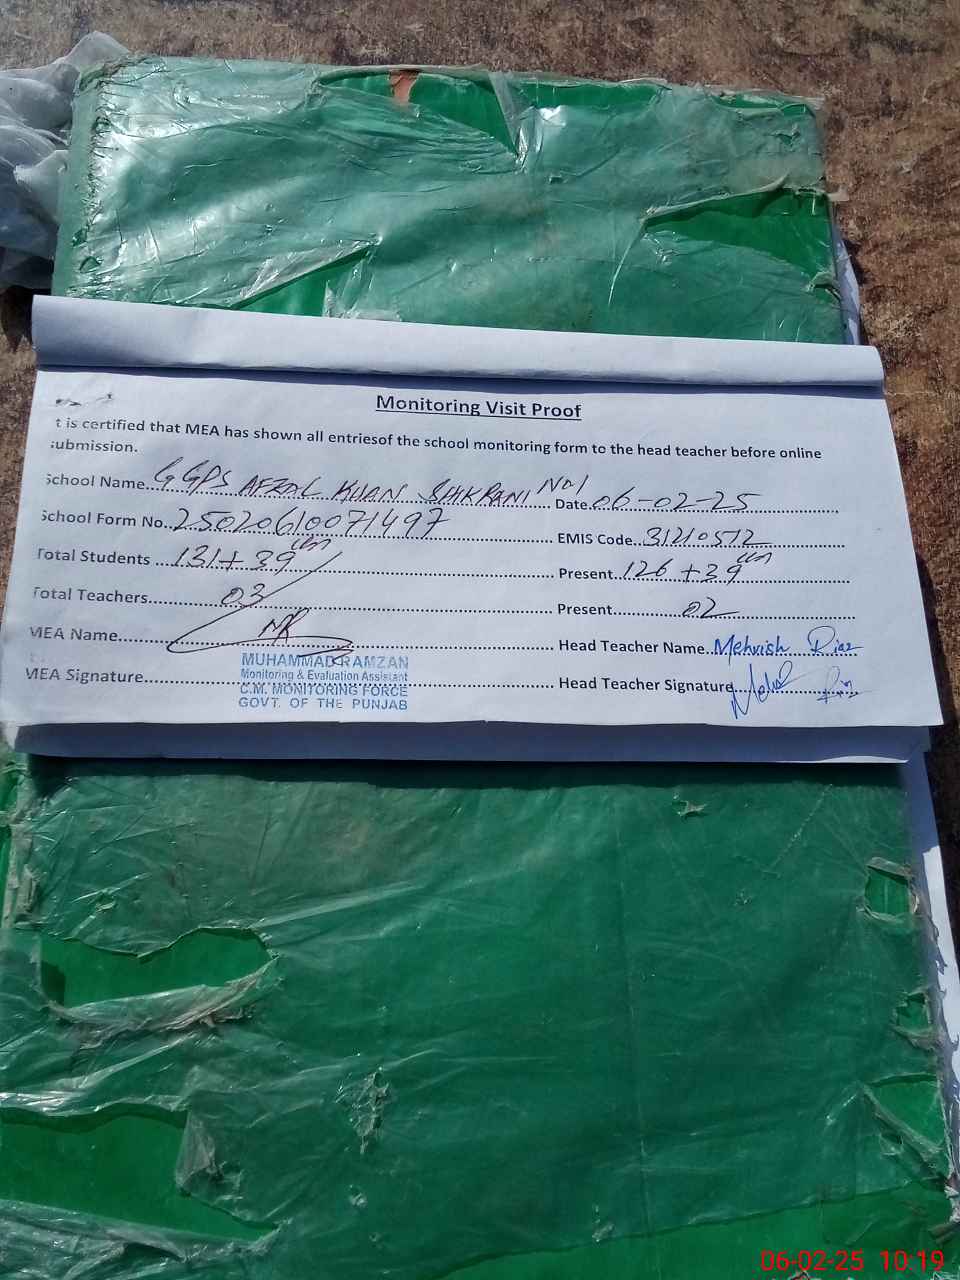 Monitoring Visit Proof
t is certified that MEA has shown all entriesof the school monitoring form to the head teacher before online
submission.
School Name..GGPS AFZAL KHAN SHKRANI No1 Date.06-02-25
School Form No..25020610071497 EMIS Code..31210512
Total Students ...131+39 Present.126+39
Total Teachers......03 Present......02
MEA Name...... Head Teacher Name..Mehvish Riaz
MUHAMMAD RAMZAN
Monitoring & Evaluation Assistant
MEA Signature...... Head Teacher Signature
C.M. MONITORING FORCE
GOVT. OF THE PUNJAB
06-02-25 10:19